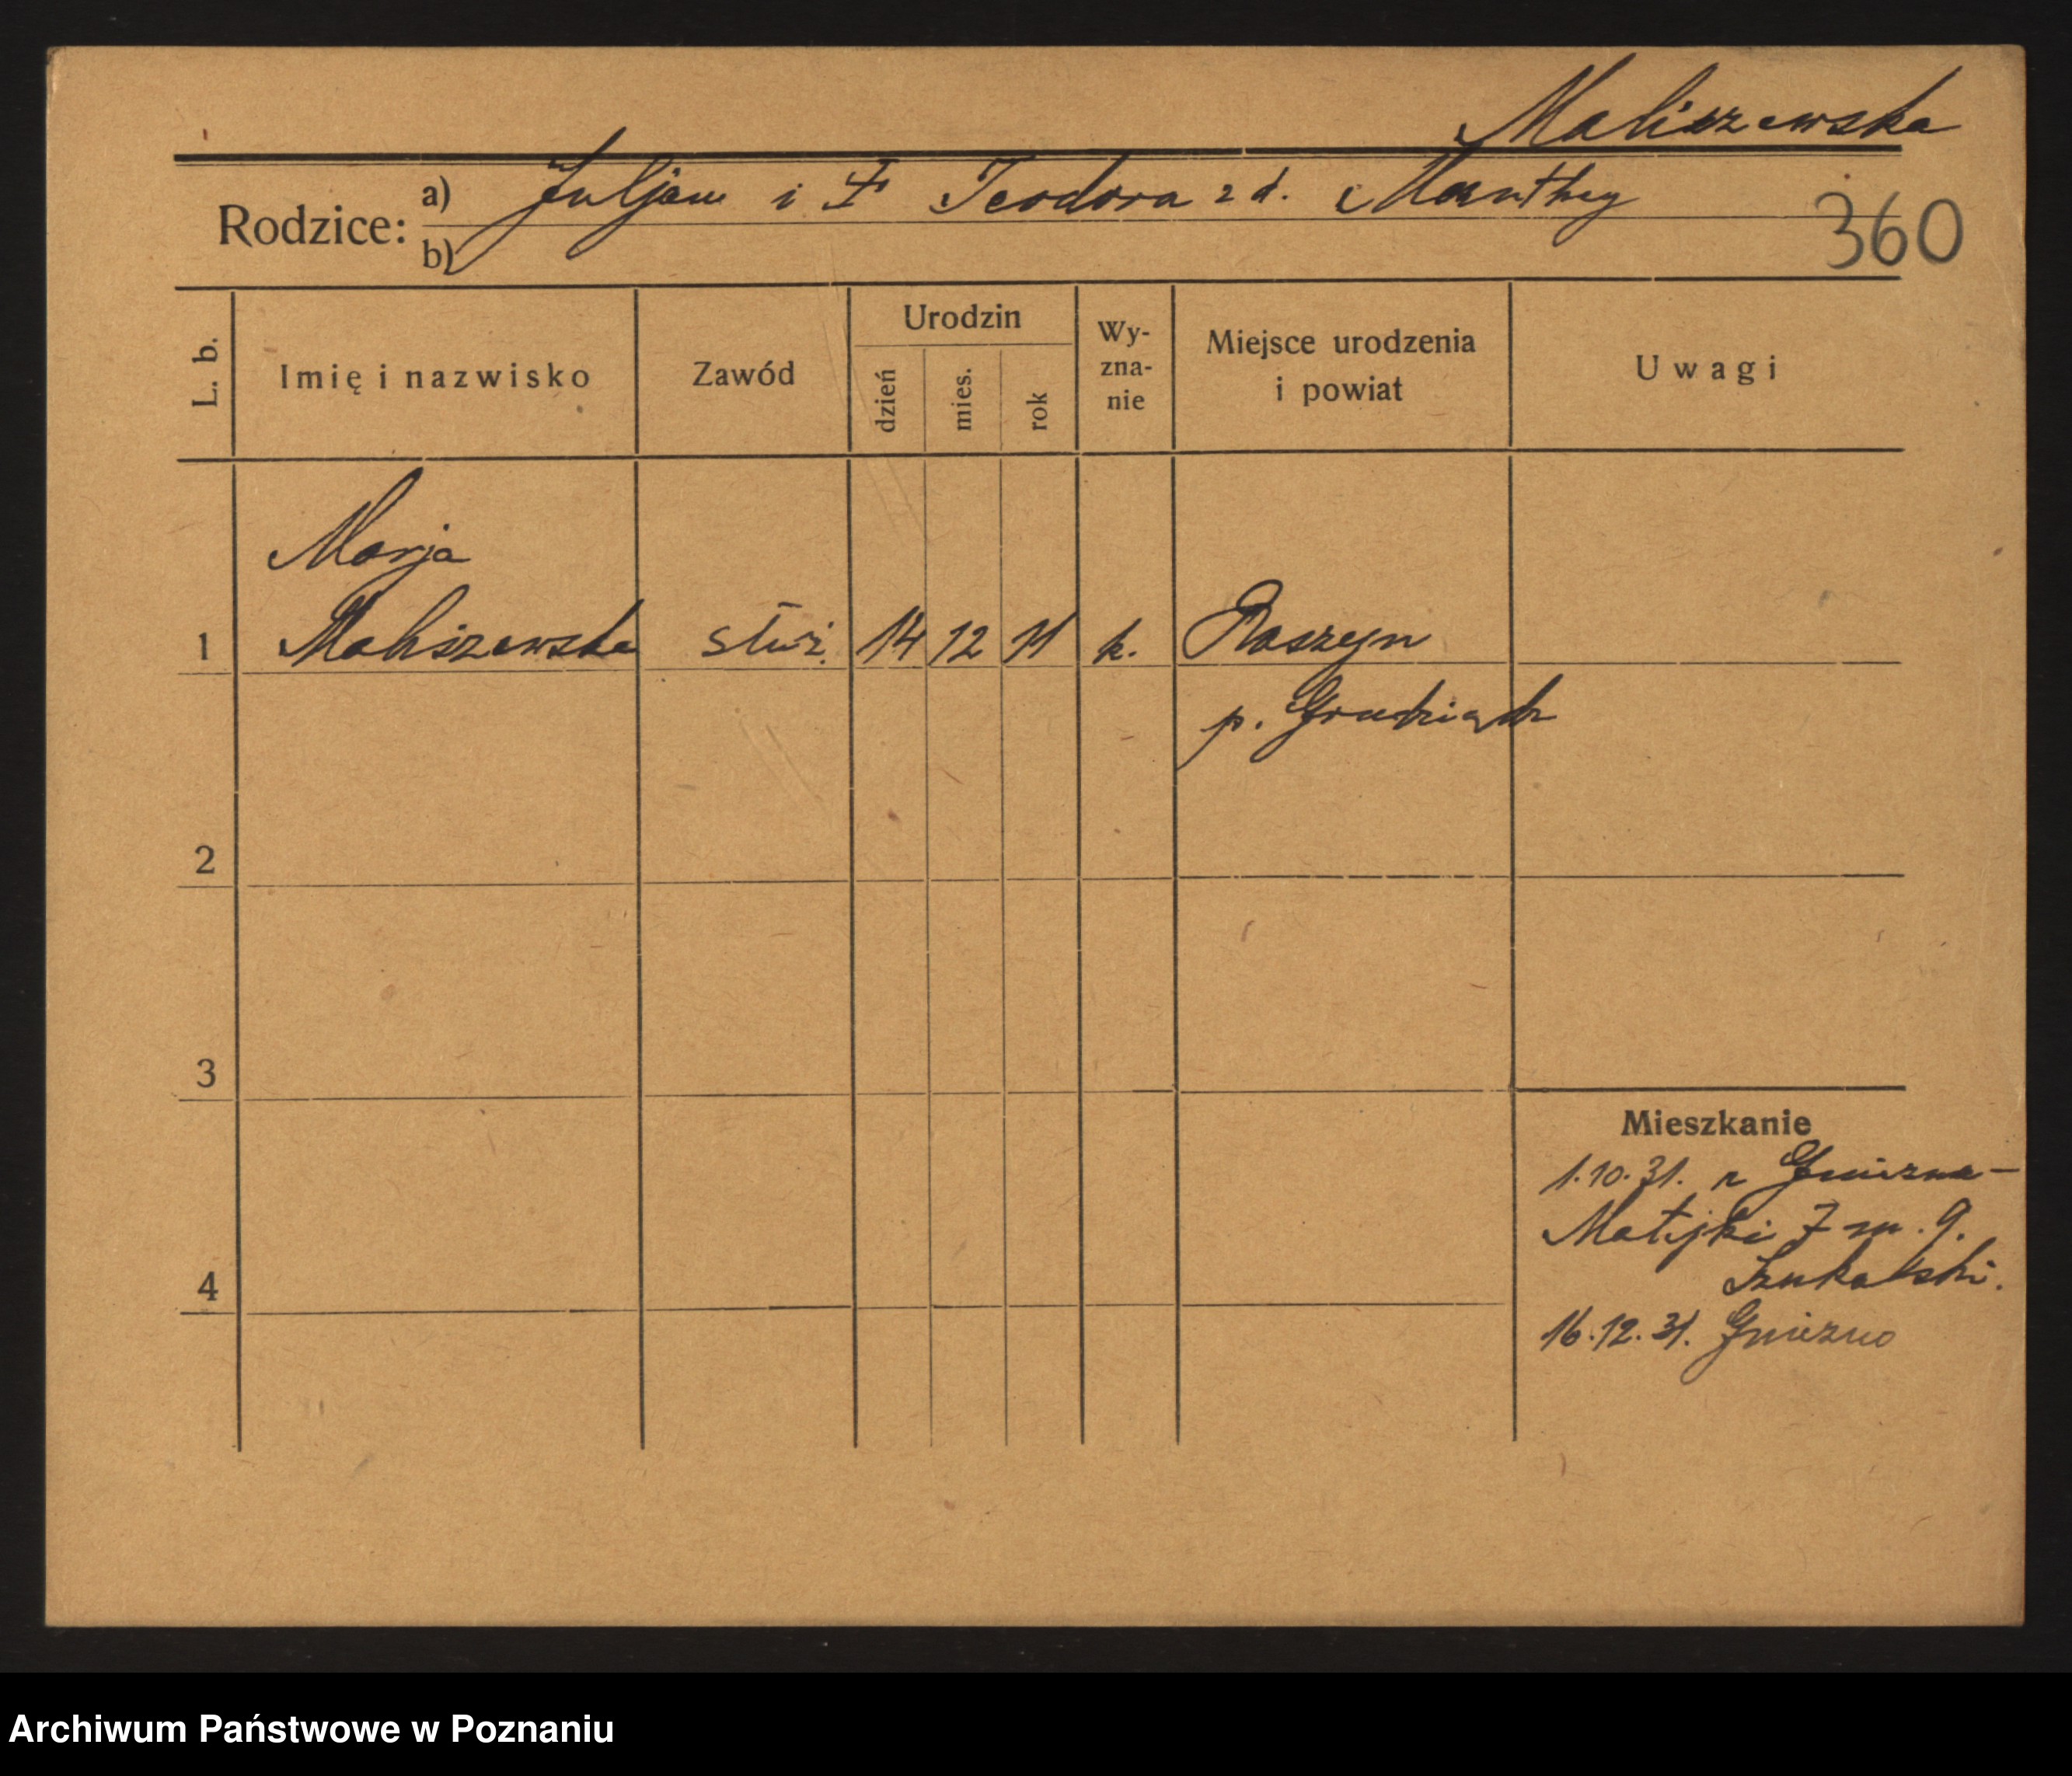 Maliszewska
Rodzice: a) Juljan i Teodora z d. Manthey
b)
360
L. b. Imię i nazwisko Zawód Urodzin dzień mies. rok Wy-zna-nie Miejsce urodzenia i powiat Uwagi
Marja
1 Maliszewska służ. 14 12 11 k.
p. Grudziądz
2
3
Mieszkanie
1.10.31. z Gniezna-
Matejki 7 m. 9.
4 Szukalski.
16.12.31. Gniezno
Archiwum Państwowe w Poznaniu